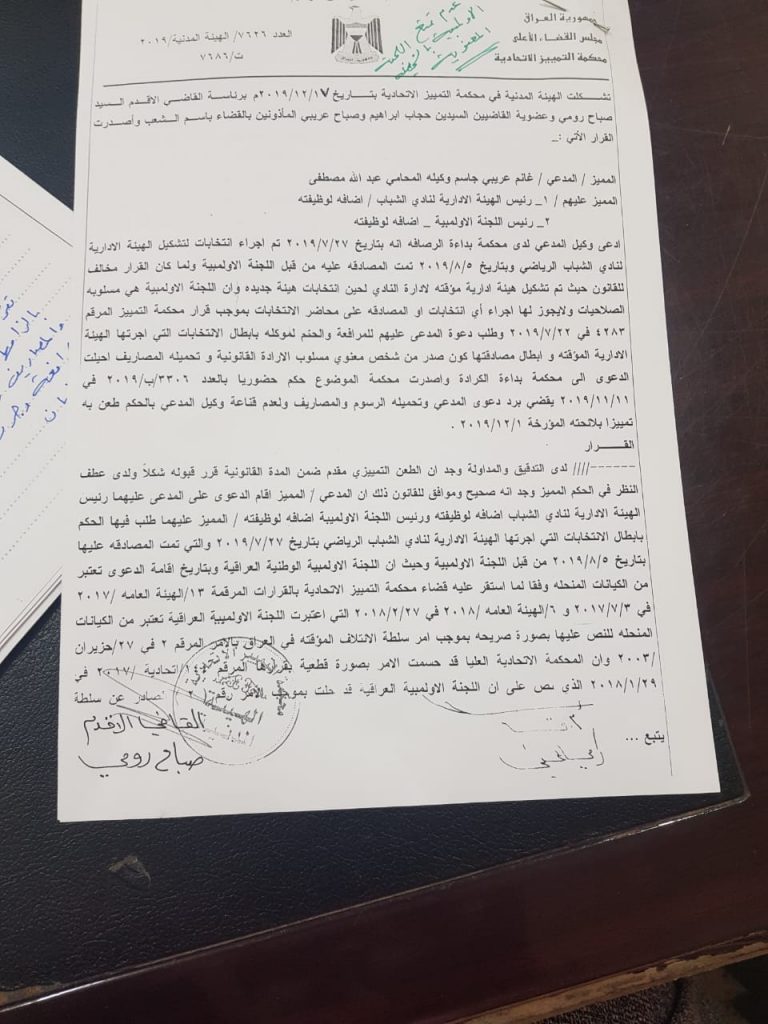 جمهورية العراق
مجلس القضاء الأعلى
محكمة التمييز الاتحادية
العدد ٧٦٢٦/ الهيئة المدنية /٢٠١٩
ت/٧٦٨٦
تشكلت الهيئة المدنية في محكمة التمييز الاتحادية بتاريخ ٢٠١٩/١٢/١٧م برئاسة القاضي الاقدم السيد
صباح رومي وعضوية القاضيين السيدين حجاب ابراهيم وصباح عريبي المأذونين بالقضاء باسم الشعب وأصدرت
القرار الآتي :_
المميز / المدعي / غانم عريبي جاسم وكيله المحامي عبد الله مصطفى
المميز عليهم / ١_ رئيس الهيئة الادارية لنادي الشباب / اضافه لوظيفته
٢_ رئيس اللجنة الاولمبية _ اضافه لوظيفته
ادعى وكيل المدعي لدى محكمة بداءة الرصافه انه بتاريخ ٢٠١٩/٧/٢٧ تم اجراء انتخابات لتشكيل الهيئة الادارية
لنادي الشباب الرياضي وبتاريخ ٢٠١٩/٨/٥ تمت المصادقه عليه من قبل اللجنة الاولمبية ولما كان القرار مخالف
للقانون حيث تم تشكيل هيئة ادارية مؤقته لادارة النادي لحين انتخابات هيئة جديده وان اللجنة الاولمبية هي مسلوبه
الصلاحيات ولايجوز لها اجراء أي انتخابات او المصادقه على محاضر الانتخابات بموجب قرار محكمة التمييز المرقم
٤٢٨٣ في ٢٠١٩/٧/٢٢ وطلب دعوة المدعى عليهم للمرافعة والحكم لموكله بابطال الانتخابات التي اجرتها الهيئة
الادارية المؤقته و ابطال مصادقتها كون صدر من شخص معنوي مسلوب الارادة القانونية و تحميله المصاريف احيلت
الدعوى الى محكمة بداءة الكرادة واصدرت محكمة الموضوع حكم حضوريا بالعدد ٣٣٠٦/ب/٢٠١٩ في
٢٠١٩/١١/١١ يقضي برد دعوى المدعي وتحميله الرسوم والمصاريف ولعدم قناعة وكيل المدعي بالحكم طعن به
تمييزا بلائحته المؤرخة ٢٠١٩/١٢/١ .
القــرار
-------//// لدى التدقيق والمداولة وجد ان الطعن التمييزي مقدم ضمن المدة القانونية قرر قبوله شكلاً ولدى عطف
النظر في الحكم المميز وجد انه صحيح وموافق للقانون ذلك ان المدعي / المميز اقام الدعوى على المدعى عليهما رئيس
الهيئة الادارية لنادي الشباب اضافه لوظيفته ورئيس اللجنة الاولمبية اضافه لوظيفته / المميز عليهما طلب فيها الحكم
بابطال الانتخابات التي اجرتها الهيئة الادارية لنادي الشباب الرياضي بتاريخ ٢٠١٩/٧/٢٧ والتي تمت المصادقه عليها
بتاريخ ٢٠١٩/٨/٥ من قبل اللجنة الاولمبية وحيث ان اللجنة الاولمبية الوطنية العراقية وبتاريخ اقامة الدعوى تعتبر
من الكيانات المنحله وفقا لما استقر عليه قضاء محكمة التمييز الاتحادية بالقرارات المرقمة ١٣/الهيئة العامه /٢٠١٧
في ٢٠١٧/٧/٣ و ٦/الهيئة العامه /٢٠١٨ في ٢٠١٨/٢/٢٧ التي اعتبرت اللجنة الاولمبية العراقية تعتبر من الكيانات
المنحله للنص عليها بصورة صريحه بموجب امر سلطة الائتلاف المؤقته في العراق بالامر المرقم ٢ في ٢٧/حزيران
/٢٠٠٣ وان المحكمة الاتحادية العليا قد حسمت الامر بصورة قطعية بقرارها المرقم اتحادية /٢٠١٧ في
٢٠١٨/١/٢٩ الذي نص على ان اللجنة الاولمبية العراقية قد حلت بموجب الامر رقم ٢ الصادر عن سلطة
يتبع ...
القاضي الاقدم
صباح رومي